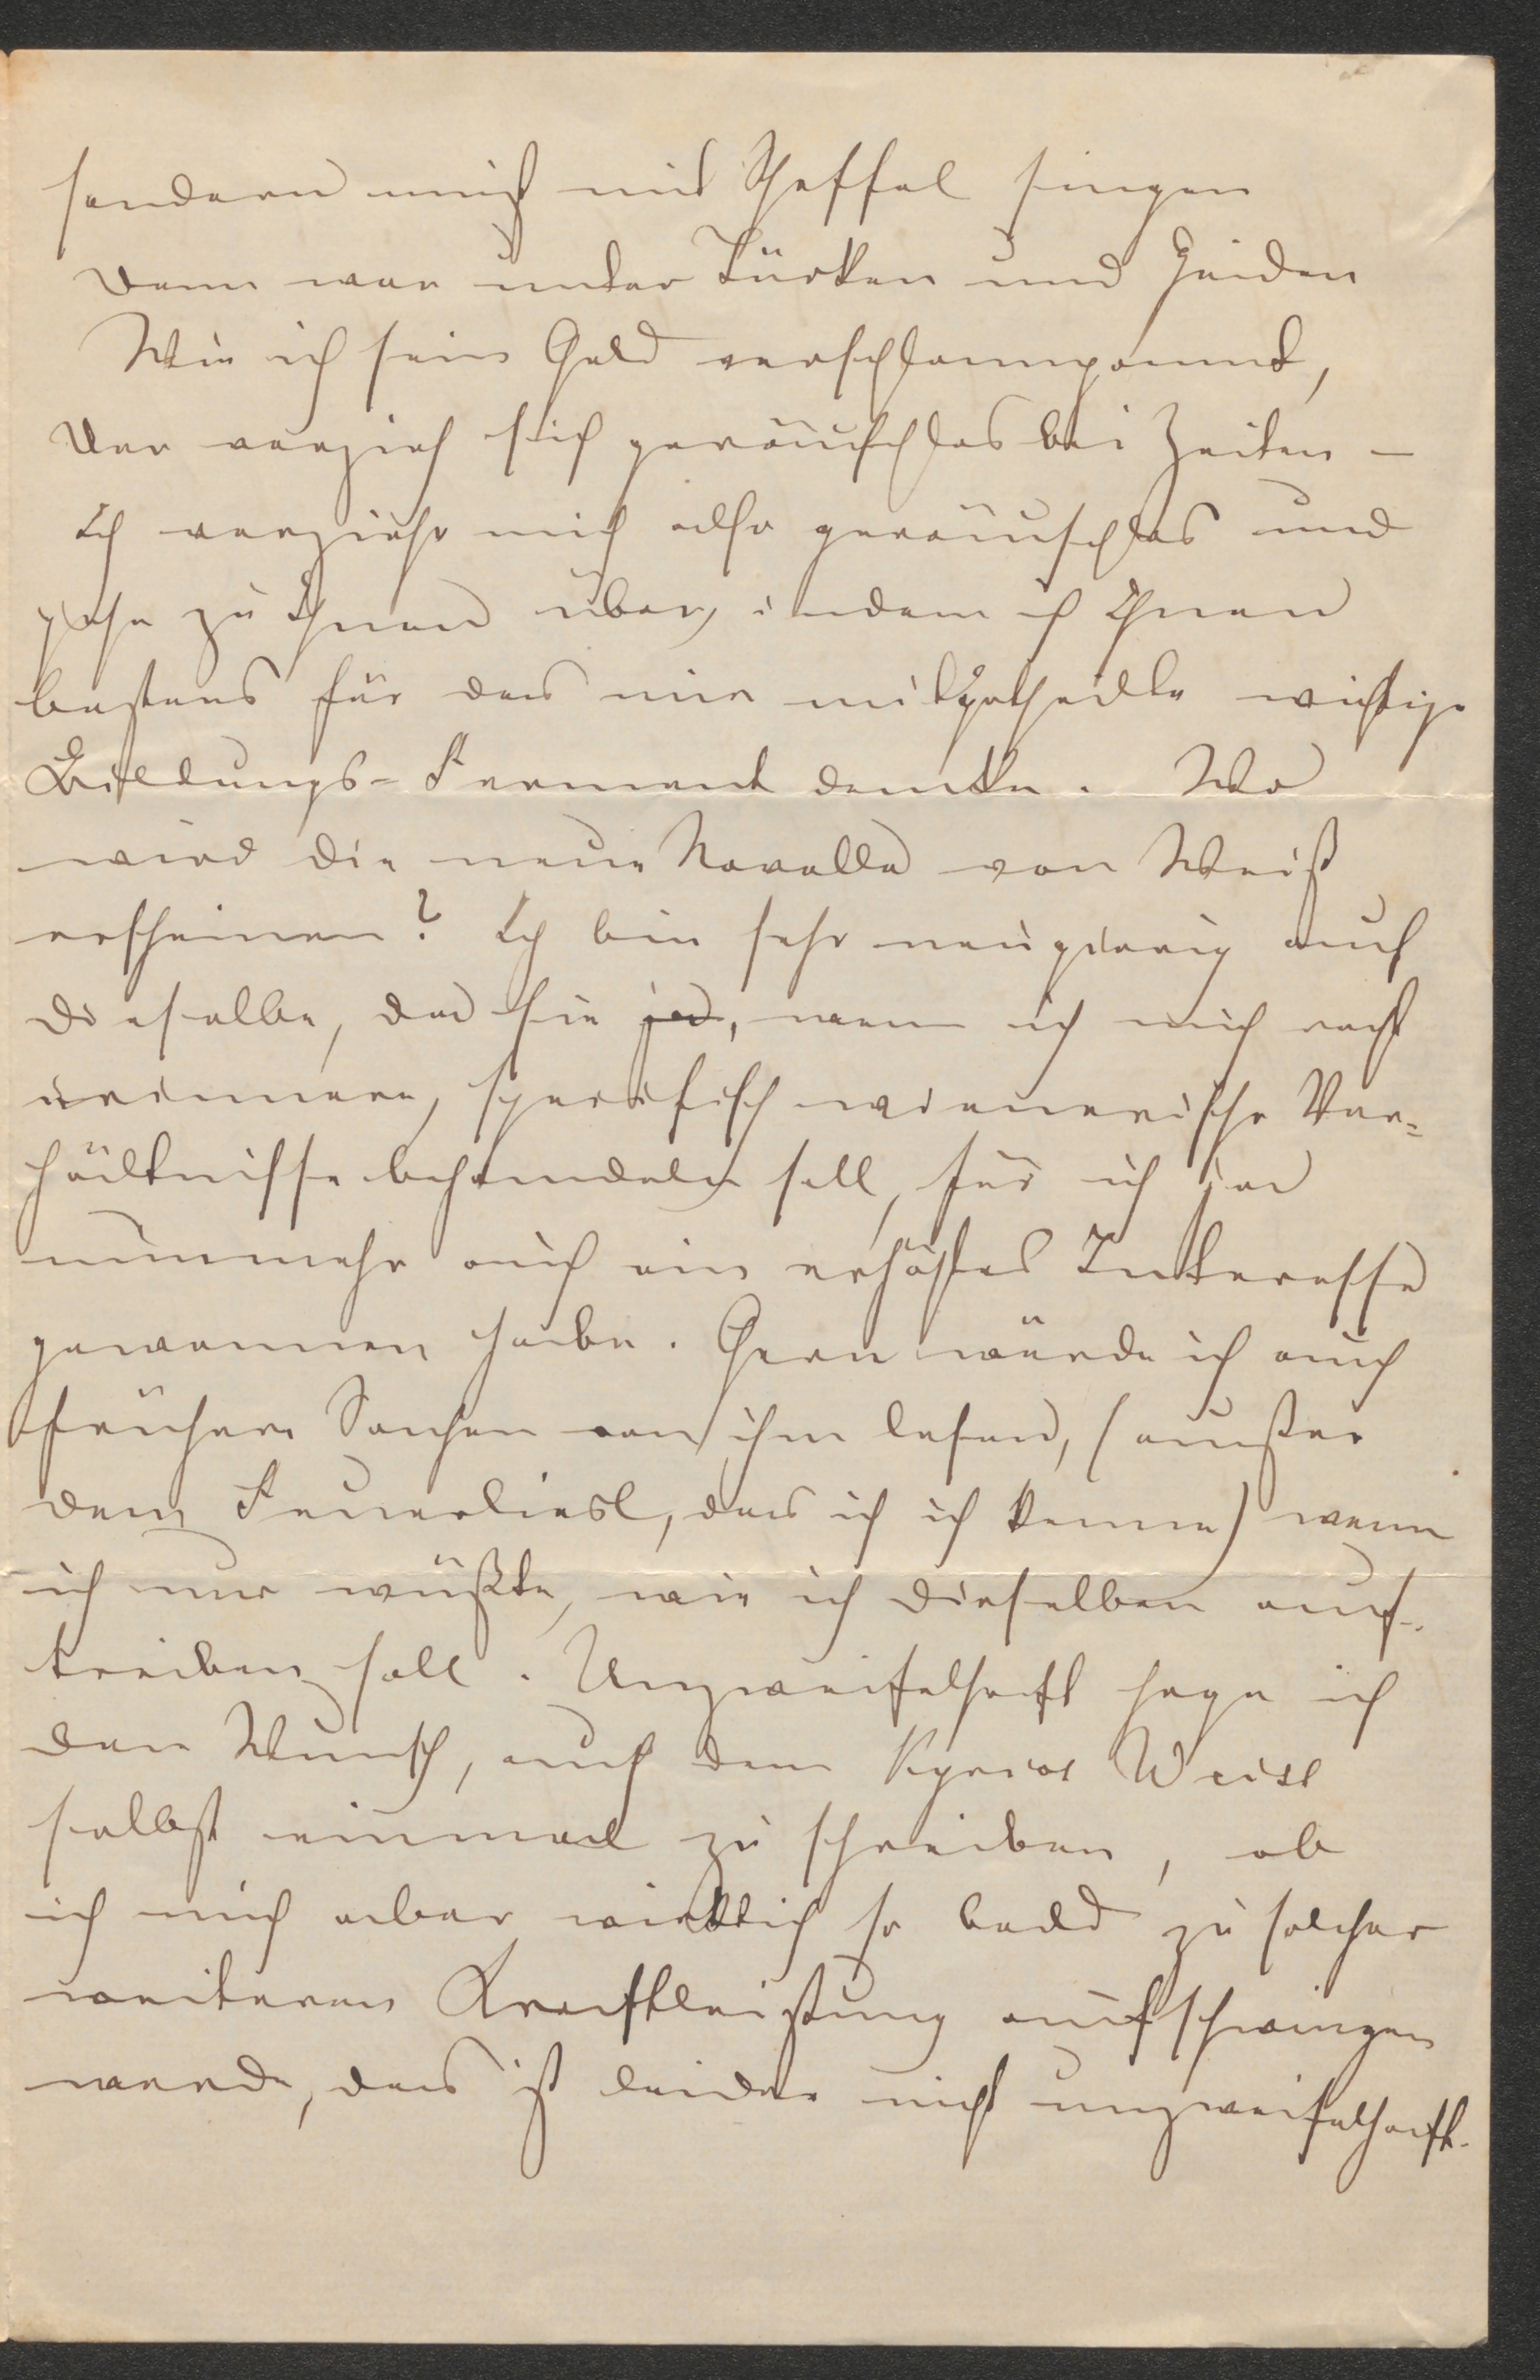 sondern muß mit Scheffel singen
Denn wer unter Türken und Heiden
Wie ich sein Geld verschlampampt,
Der verzieh sich geräuschlos bei Zeiten –
Ich verziehe mich also geräuschlos und
gehe zu Ihnen über, indem ich Ihnen
bestens für das mir mitgetheilte wichtige
Bildungs-Ferment danke. Wo
wird die neue Novelle von Weiß
erscheinen? Ich bin sehr neugierig auf
dieselbe, da sie ja, wenn ich mich recht
erinnere, specifisch wienerische Ver-
hältnisse behandeln soll, für ich ja
nunmehr auch ein erhöhtes Interesse
gewonnen habe. Gern würde ich auch
frühere Sachen von ihm lesen, (außer
dem Feuerliesl, das ich ich kenne) wenn
ich nur wüßte, wie ich dieselben auf-
treiben soll. Unzweifelhaft hege ich
den Wunsch, auch dem Kyrios Weiss
selbst einmal zu schreiben, ob
ich mich aber wirklich so bald zu solcher
weiteren Kraftleistung aufschwingen
werde, das ist leider nicht unzweifelhaft.